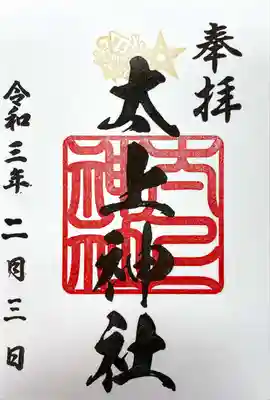 奉拝
太上神社
令和三年二月三日